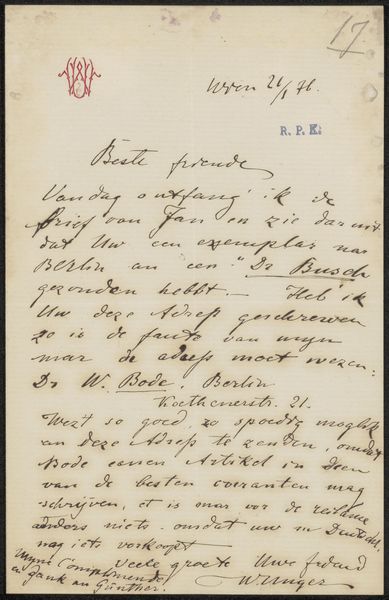 17
W
Wien 21/1 76.
R. P. K.
Beste friende
Vandag ontfang ik de
brief van Jan en zie dar mit
dat Uw een exemplar nar
Berlin an een "Dr Busch
gezonden hebbt. — Heb ik
Uw deze Adress geschrewen
zo is de faute van myn
mar de adress moet wezen:
Dr W. Bode. Berlin
Koethenerstr. 21.
Wezt so goed, zo spoedig moglik
an deze Adress te zenden, omdat
Bode eenen Artikel in deen
van de besten couranten mag
schrijven, et is mar vor de reclame
anders niets. omdat uw in Deutschl.
nag iets verkoopt
Veele groete Uwe friend
W Unger
Myne Complimende
en Jank an Günther.